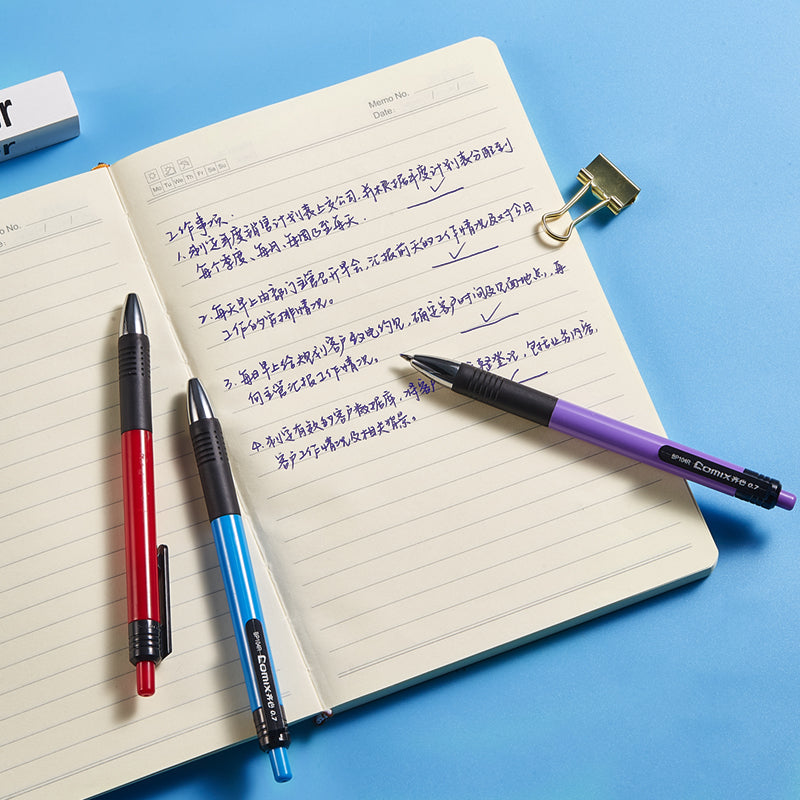 r
er
o No.
e:
Memo No.
Date:
Mo Tu We Th Fr Sa Su
工作事项.
1. 制定年度销售计划表上交公司,并根据年度计划表分配到
每个季度、每月、每周乃至每天.
2. 每天早上由部门主管召开早会,汇报前天的工作情况及对今日
工作的安排情况。
3. 每日早上给规划客户致电约见,确定客户时间及见面地点,再
向主管汇报工作情况。
4. 制定有效的客户数据库,将客户 整登记,包括业务内容,
客户工作情况及相关背景。
BP104R COMIX齐心 0.7
BP104R COMIX齐心 0.7